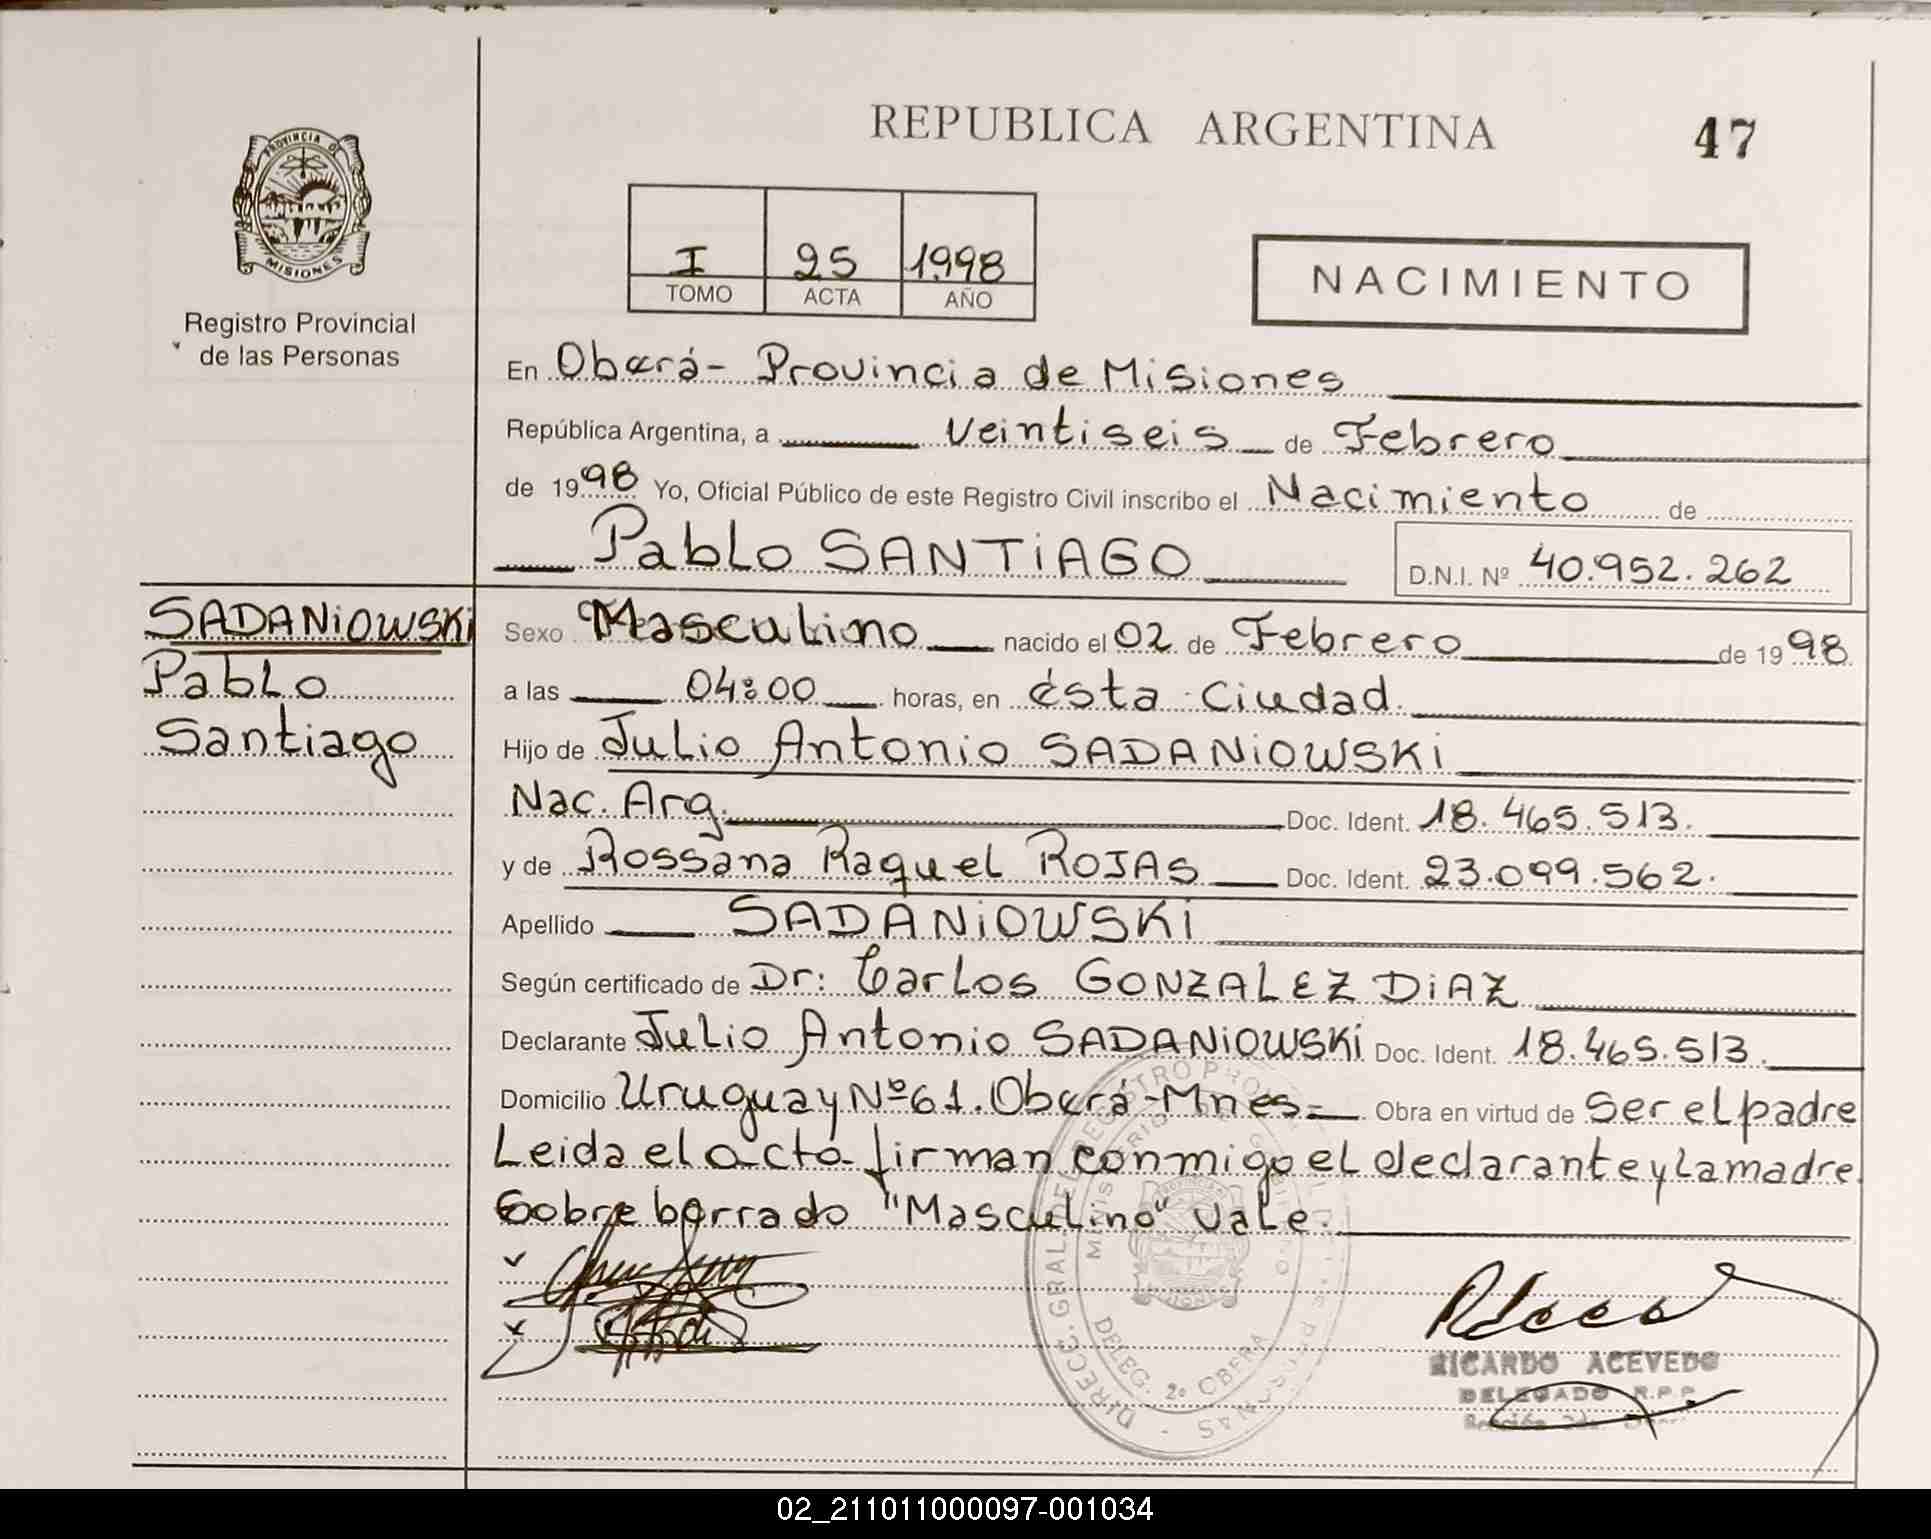 REPUBLICA ARGENTINA
47
PROVINCIA D
MISIONES
Registro Provincial
de las Personas
I 25 1998
TOMO ACTA AÑO
NACIMIENTO
En Oberá - Provincia de Misiones
República Argentina, a veintiseis de Febrero
de 1998 Yo, Oficial Público de este Registro Civil inscribo el Nacimiento de
Pablo SANTiAGO D.N.I. Nº 40.952.262
SADANiOWSKi
Pablo
Santiago
Sexo Masculino nacido el 02 de Febrero de 1998
a las 04:00 horas, en ésta Ciudad.
Hijo de Julio Antonio SADANiOWSKi
Nac. Arg. Doc. Ident. 18.465.513.
y de Rossana Raquel ROJAS Doc. Ident. 23.099.562.
Apellido SADANiOWSKi
Según certificado de Dr: Carlos GONZALEZ DiAZ
Declarante Julio Antonio SADANiOWSKi Doc. Ident. 18.465.513.
Domicilio Uruguay Nº 61. Oberá - Mnes - Obra en virtud de Ser el padre
Leida el acta firman conmigo el declarante y la madre.
Sobre borrado "Masculino" vale.
DIRECC. GRAL. DEL REGISTRO
DELEG. 2º OBERA
RICARDO ACEVEDO
DELEGADO R.P.P.
02_211011000097-001034